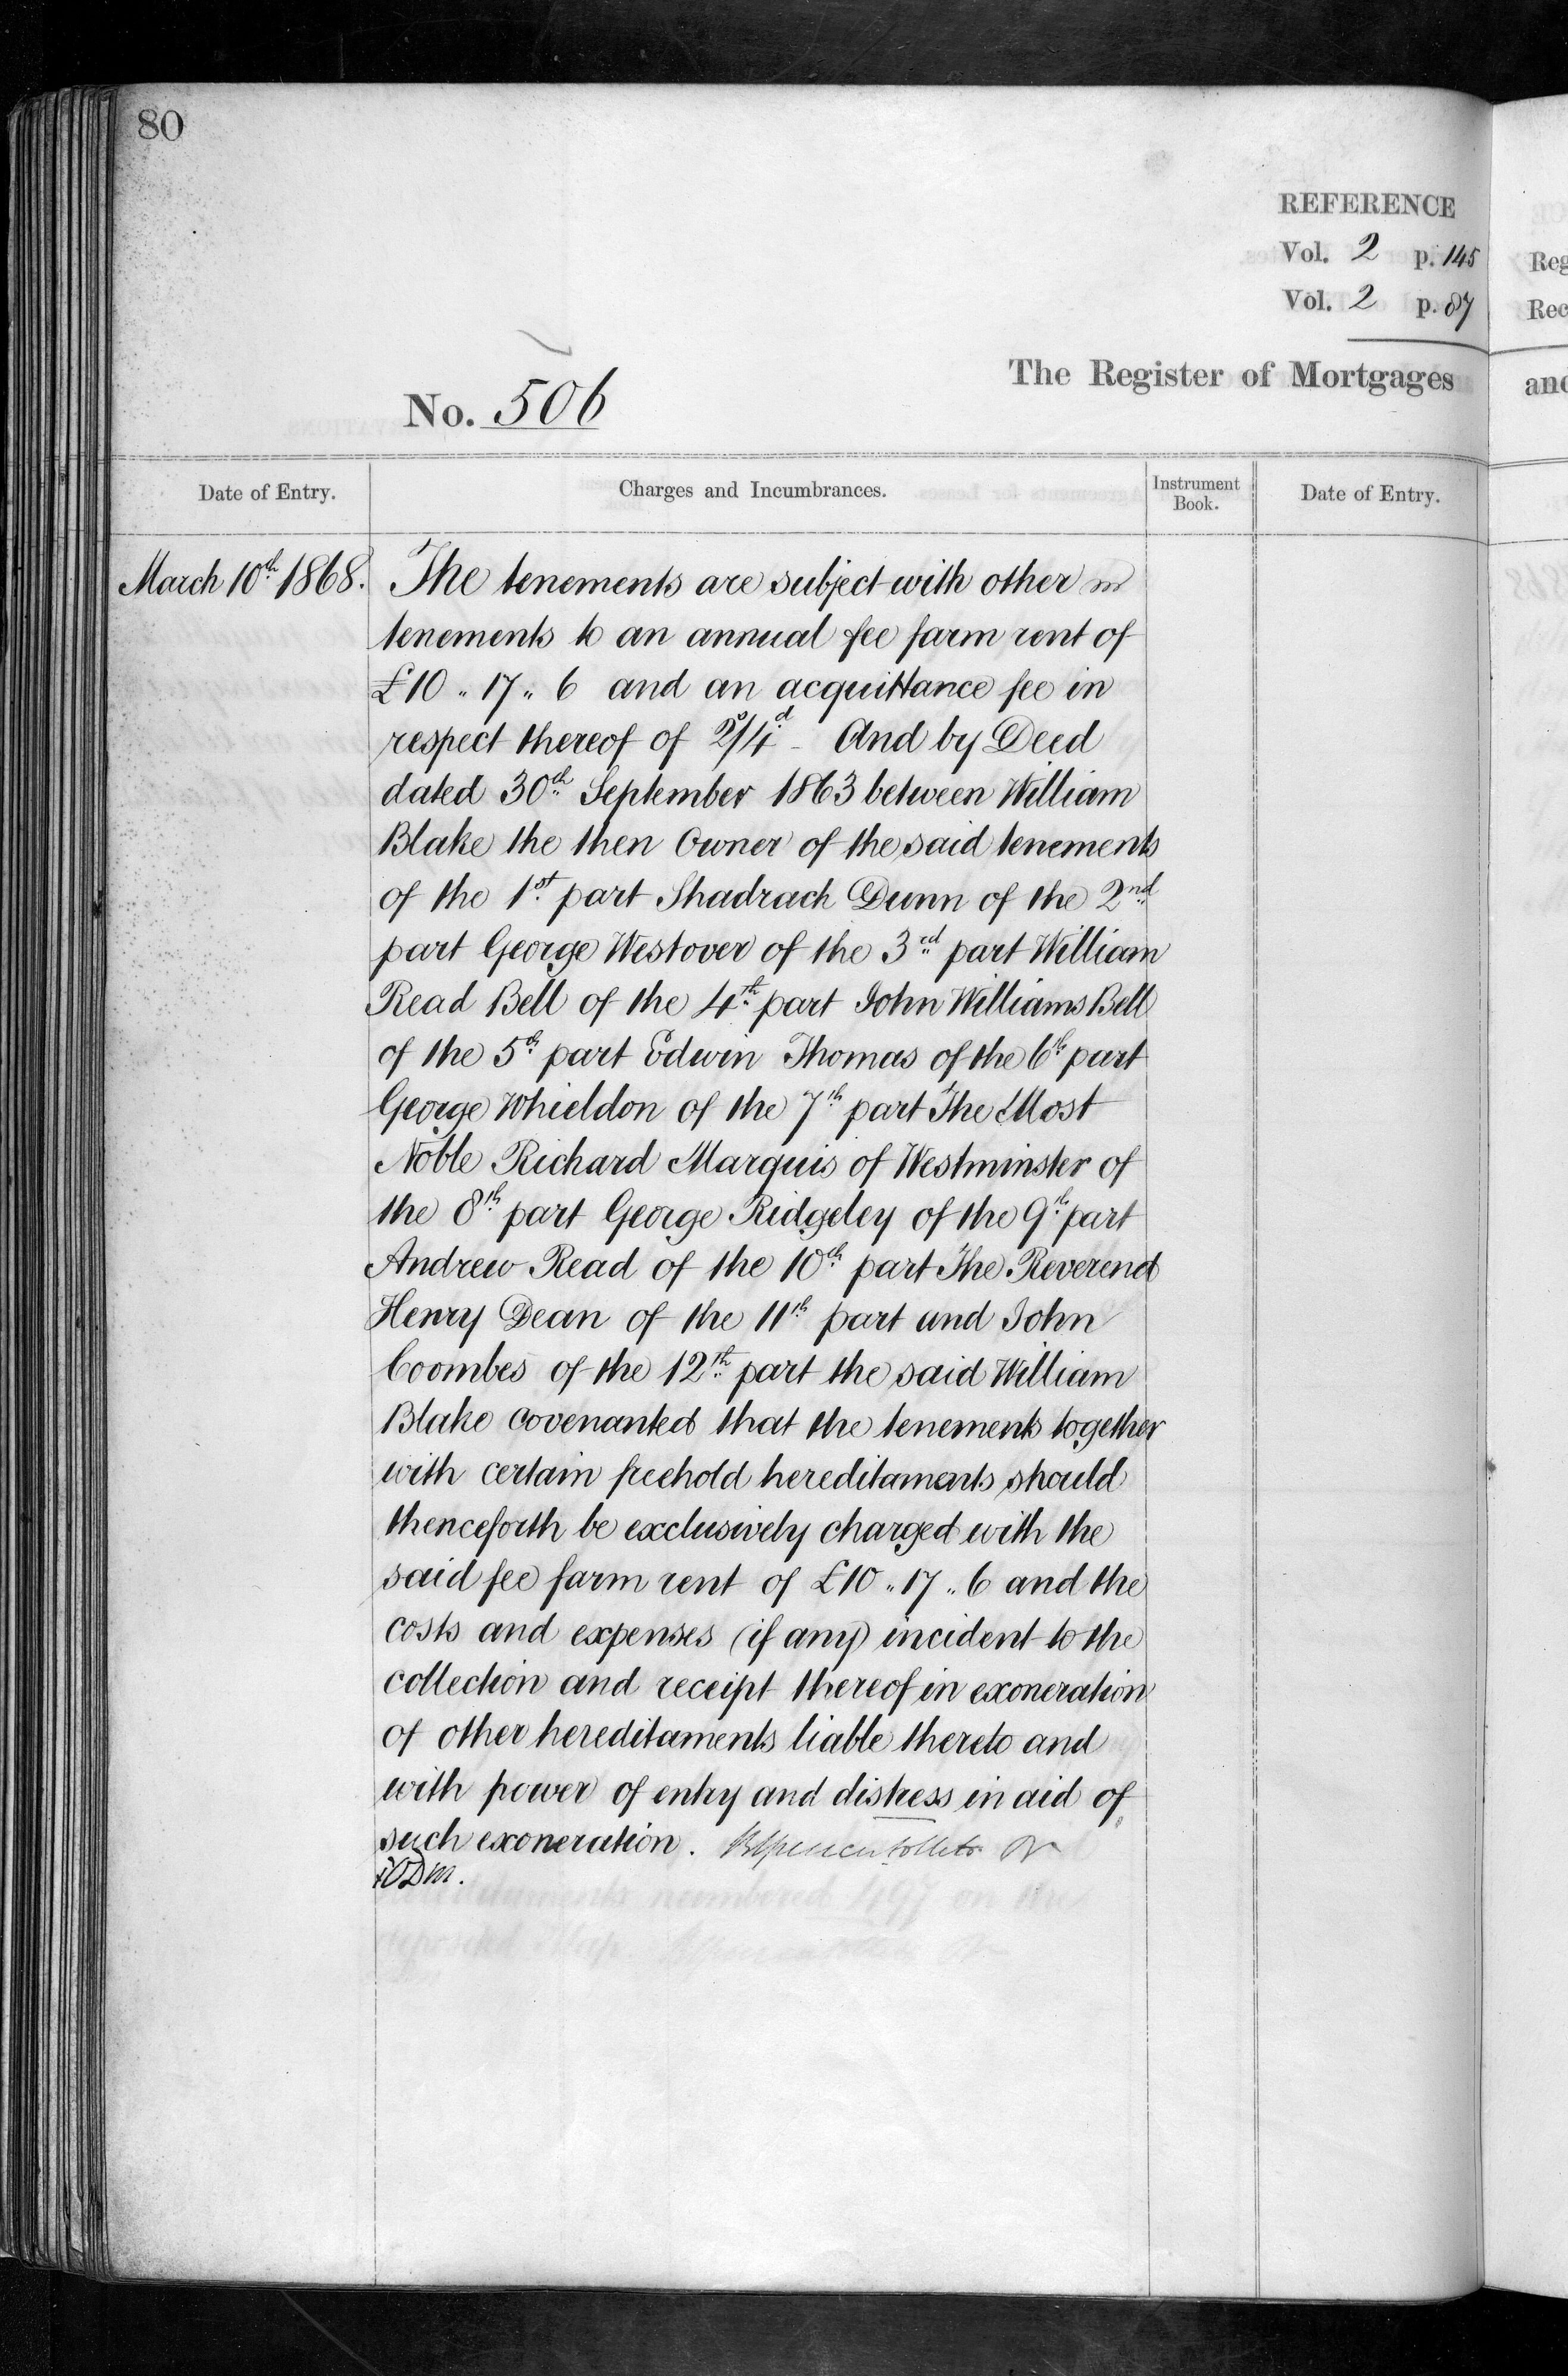 80
REFERENCE
Vol. 2 p. 145
Vol. 2 p. 87
The Register of Mortgages
No. 506
Date of Entry. Charges and Incumbrances. Instrument Book. Date of Entry.
March 10th 1868. The tenements are subject with other
tenements to an annual fee farm rent of
£10 „ 17 „ 6 and an acquittance fee in
respect thereof of 2s/4d - And by Deed
dated 30th September 1863 between William
Blake the then Owner of the said tenements
of the 1st part Shadrach Dunn of the 2nd
part George Westover of the 3rd part William
Read Bell of the 4th part John Williams Bell
of the 5th part Edwin Thomas of the 6th part
George Whieldon of the 7th part The Most
Noble Richard Marquis of Westminster of
the 8th part George Ridgeley of the 9th part
Andrew Read of the 10th part The Reverend
Henry Dean of the 11th part and John
Coombes of the 12th part the said William
Blake covenanted that the tenements together
with certain freehold hereditaments should
thenceforth be exclusively charged with the
said fee farm rent of £10 „ 17 „ 6 and the
costs and expenses (if any) incident to the
collection and receipt thereof in exoneration
of other hereditaments liable thereto and
with power of entry and distress in aid of
such exoneration.
Reg
Rec
and